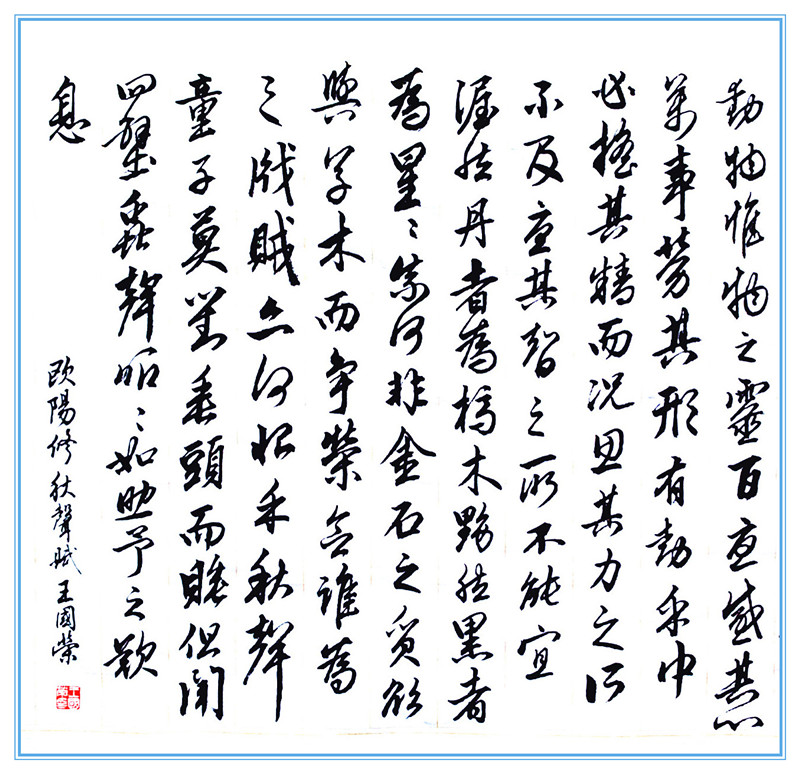 動物惟物之靈百憂感其心
萬事勞其形有動乎中
必搖其精而況思其力之所
不及憂其智之所不能宜
渥然丹者為槁木黟然黑者
為星〻奈何非金石之質欲
與草木而爭榮念誰為
之戕賊亦何恨乎秋聲
童子莫對垂頭而睡但聞
四壁蟲聲唧〻如助予之歎
息
歐陽修秋聲賦 王國榮